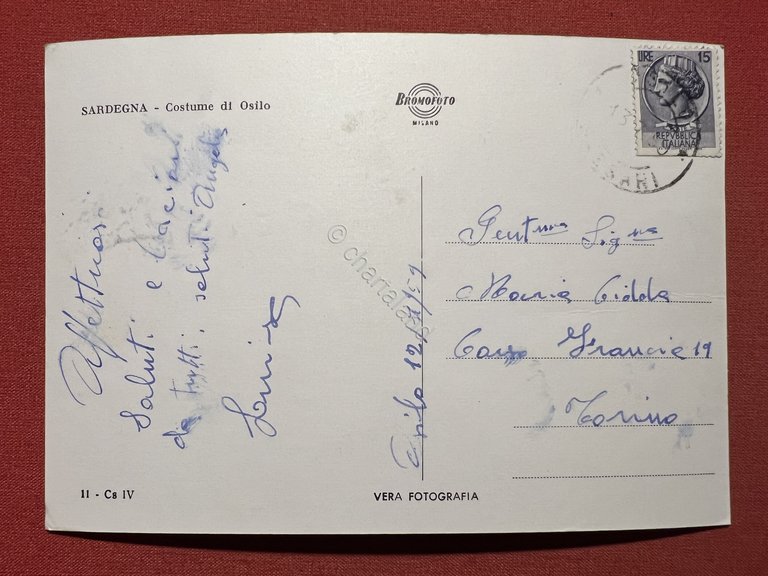 SARDEGNA - Costume di Osilo
BROMOFOTO
MILANO
LIRE 15
REPVBBLICA
ITALIANA
Affettuosi
saluti e baci
da tutti, saluti Angela
Gent.ma Sig.na
Maria
Corso Francia 19
Torino
Osilo 12/ /59
© chartaland
11 - Cs IV
VERA FOTOGRAFIA